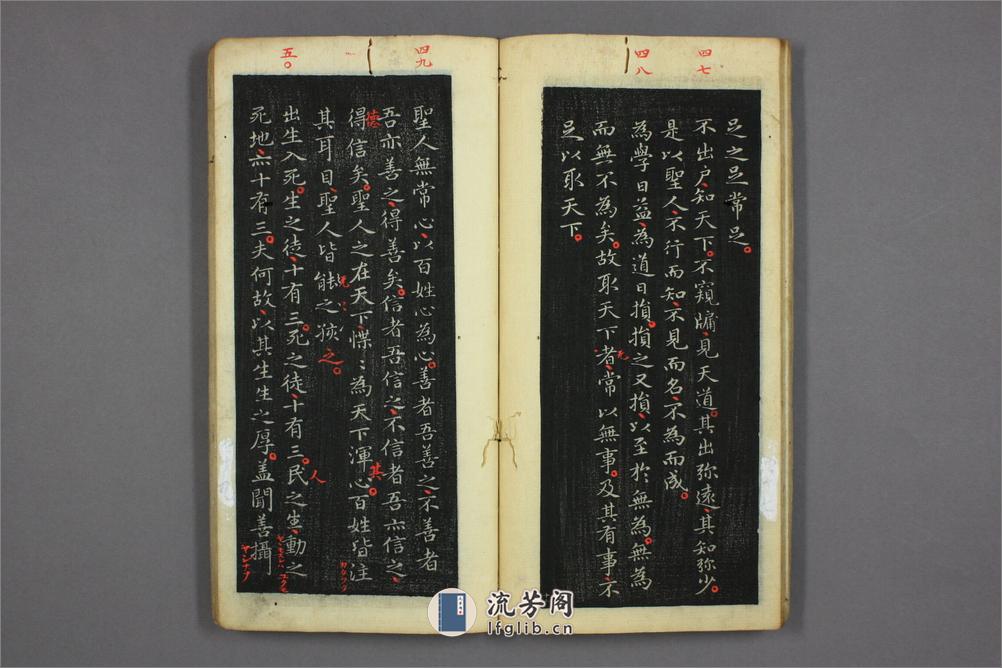 四七
四八
足之足常足
不出戶知天下不窺牖見天道其出弥遠其知弥少
是以聖人不行而知不見而名不為而成
為學日益為道日損損之又損以至於無為無為
而無不為矣故取天下者常以無事及其有事不
足以取天下
四九
五〇
聖人無常心以百姓心為心善者吾善之不善者
吾亦善之得善矣信者吾信之不信者吾亦信之
德
得信矣聖人之在天下惵〻為天下渾心百姓皆注
其
其耳目聖人皆
之
之。
出生入死生之徒十有三死之徒十有三民之生動之
人
死地亦十有三夫何故以其生生之厚盖聞善攝
流芳阁
lfglib.cn